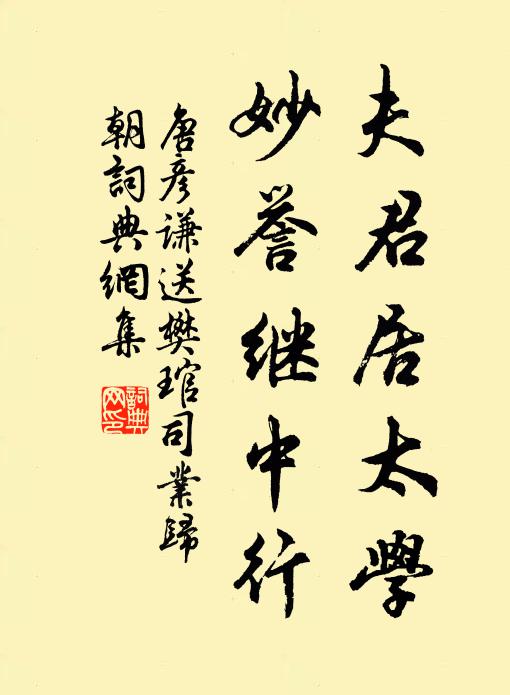 夫君居太学
妙誉继中行
唐彦谦送樊琯司業歸
朝詞典網集
詞典网印